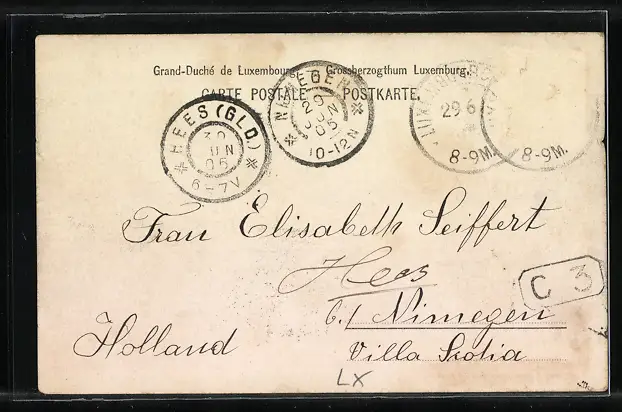 Grand-Duché de Luxembourg. Grossherzogthum Luxemburg.
CARTE POSTALE POSTKARTE.
HEES (GLD)
30 JUN 05
6-7V
NIJMEGEN
29 JUN 05
10-12N
29 6
8-9M.
8-9M.
Frau Elisabeth Seiffert
Hees
b./ Nimegen
Holland
Villa Scotia
C 3
LX